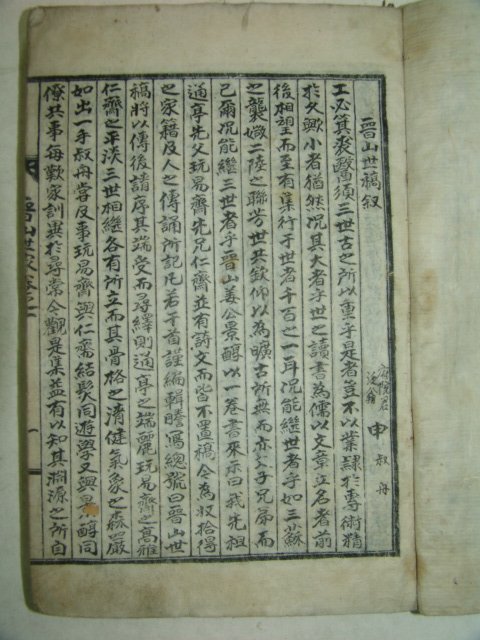 晉山世稿叙
府院君
泛翁
申叔舟
工必箕裘醫須三世古之所以重乎是者豈不以業隸於專術精
於久歟小者猶然况其大者乎世之讀書為儒以文章立名者前
後相望而至有集行于世者千百之一耳况能繼世者乎如三蘇
之襲媺二陸之聯芳世共歆仰以為曠古所無而亦父子兄弟而
已爾况能繼三世者乎晉山姜公景醇以一卷書來示曰我先祖
通亭先父玩易齋先兄仁齋並有詩文而皆不置稿今為収拾得
之家籍及人之傳誦所記凡若干首謹編輯謄寫總號曰晉山世
稿將以傳後請序其端受而尋繹則通亭之端麗玩易齋之高雅
仁齋之平淡三世相繼各有所立而其骨格之清健氣象之森嚴
如出一手叔舟嘗及事玩易齋與仁齋結髮同遊學又與景醇同
僚共事每歎家訓異於尋常今觀是集益有以知其淵源之所自
晉山世稿卷之一
一